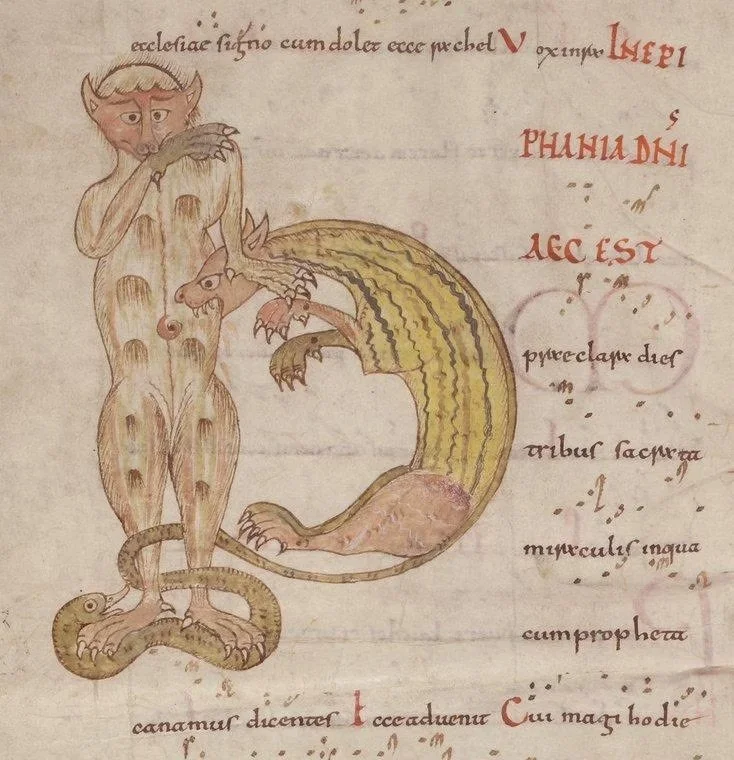 ecclesiae signo cum dolet ecce rachel Vox in ra IN EPI
PHANIA DNI
AEC EST
praeclara dies
tribus sacrata
miraculis in qua
cum propheta
canamus dicentes Ecce aduenit Cui magi hodie